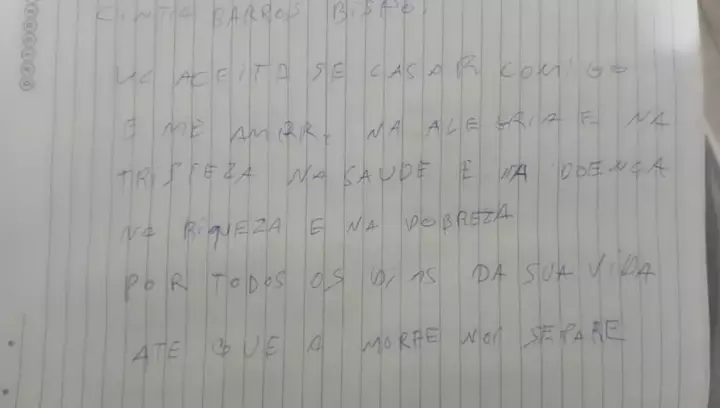 CINTIA BARROS BISPO,
VC ACEITA SE CASAR COMIGO
E ME AMAR, NA ALEGRIA E NA
TRISTEZA NA SAUDE E NA DOENÇA
NA RIQUEZA E NA POBREZA
POR TODOS OS DIAS DA SUA VIDA
ATE QUE A MORTE NOS SEPARE